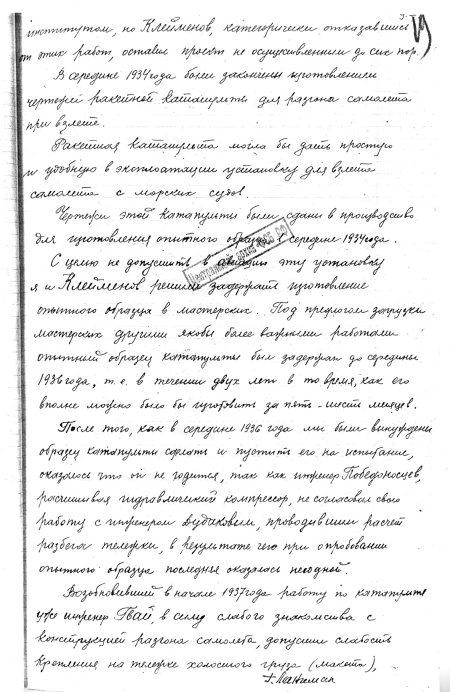 3.
институтом, но Клейменов, категорически отказавшись
от этих работ, оставил проект не осуществленным до сих пор.
В середине 1934 года были закончены изготовлением
чертежи ракетной катапульты для разгона самолета
при взлете.
Ракетная катапульта могла бы дать простую
и удобную в эксплоатации установку для взлета
самолета с морских судов.
Чертежи этой катапульты были сданы в производство
для изготовления опытного образца в середине 1934 года.
Центральный архив ФСБ РФ
С целью не допустить в авиацию эту установку
я и Клейменов решили задержать изготовление
опытного образца в мастерских. Под предлогом загрузки
мастерских другими якобы более важными работами
опытный образец катапульты был задержан до середины
1936 года, т.е. в течении двух лет в то время, как его
вполне можно было бы изготовить за пять-шесть месяцев.
После того, как в середине 1936 года мы были вынуждены
образец катапульты сделать и пустить его на испытание,
оказалось что он не годится, так как инженер Победоносцев,
расчитывая гидравлический компрессор, не согласовал свою
работу с инженером Дудаковым, проводившим расчет
разбега тележки, в результате чего при опробовании
опытного образца последнее оказалась негодной.
Возобновивший в начале 1937 года работу по катапульте
уже инженер Гвай, в силу слабого знакомства с
конструкцией разгона самолета, допустил слабость
крепления на тележке холостого груза (макета),
Г. Лангемак